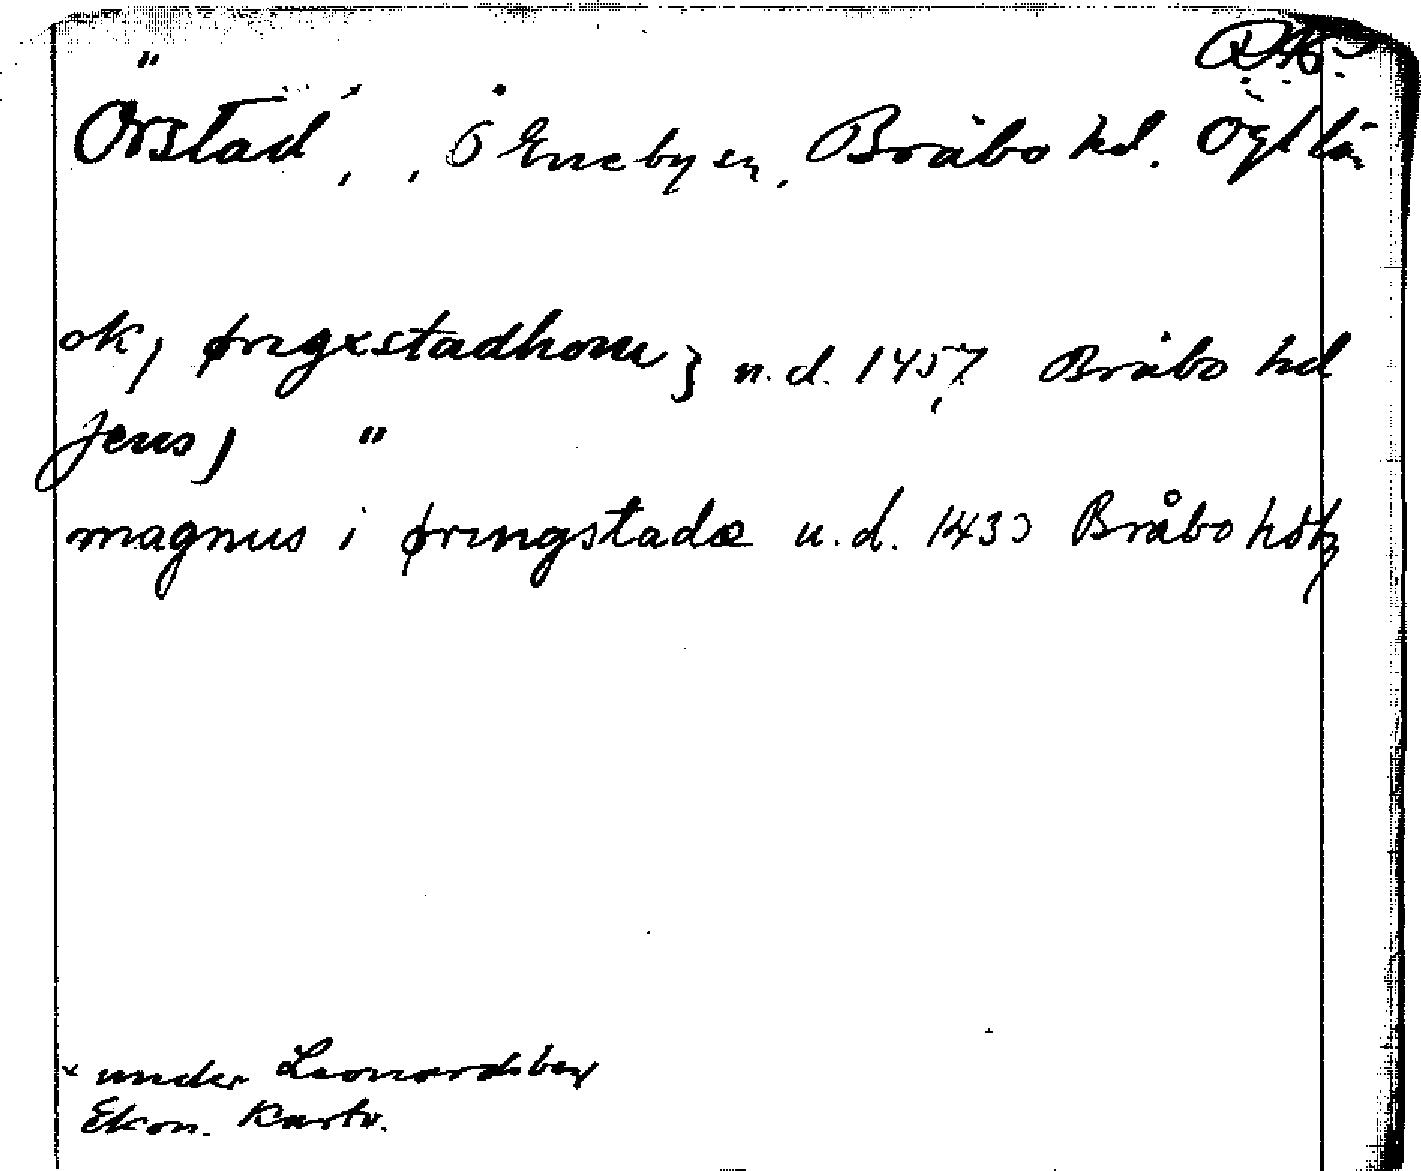 Örstad, Ö Eneby sn, Bråbo hd. Ögl län
ok, ørigxstadhom } u.d. 1457 Bråbo hd
Jens, "
magnus i øringstada u.d. 143 Bråbo hdg
x under Leonardsberg
Ekon. Kartv.